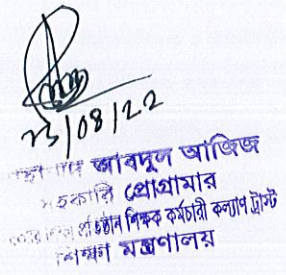 ২৩/08/22
আবদুল আজিজ
সহকারি প্রোগ্রামার
শিক্ষা প্রতিষ্ঠান শিক্ষক কর্মচারী কল্যাণ ট্রাস্ট
শিক্ষা মন্ত্রণালয়